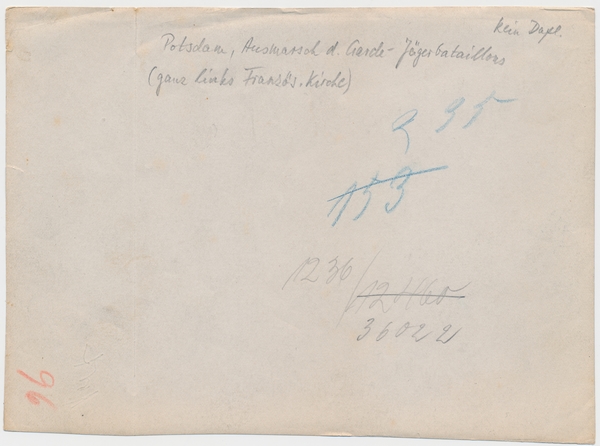 Kein Dopl.
Potsdam, Ausmarsch d. Garde-Jägerbataillons
(ganz links Französ. Kirche)
a 95
153
1236/12460
36022
96